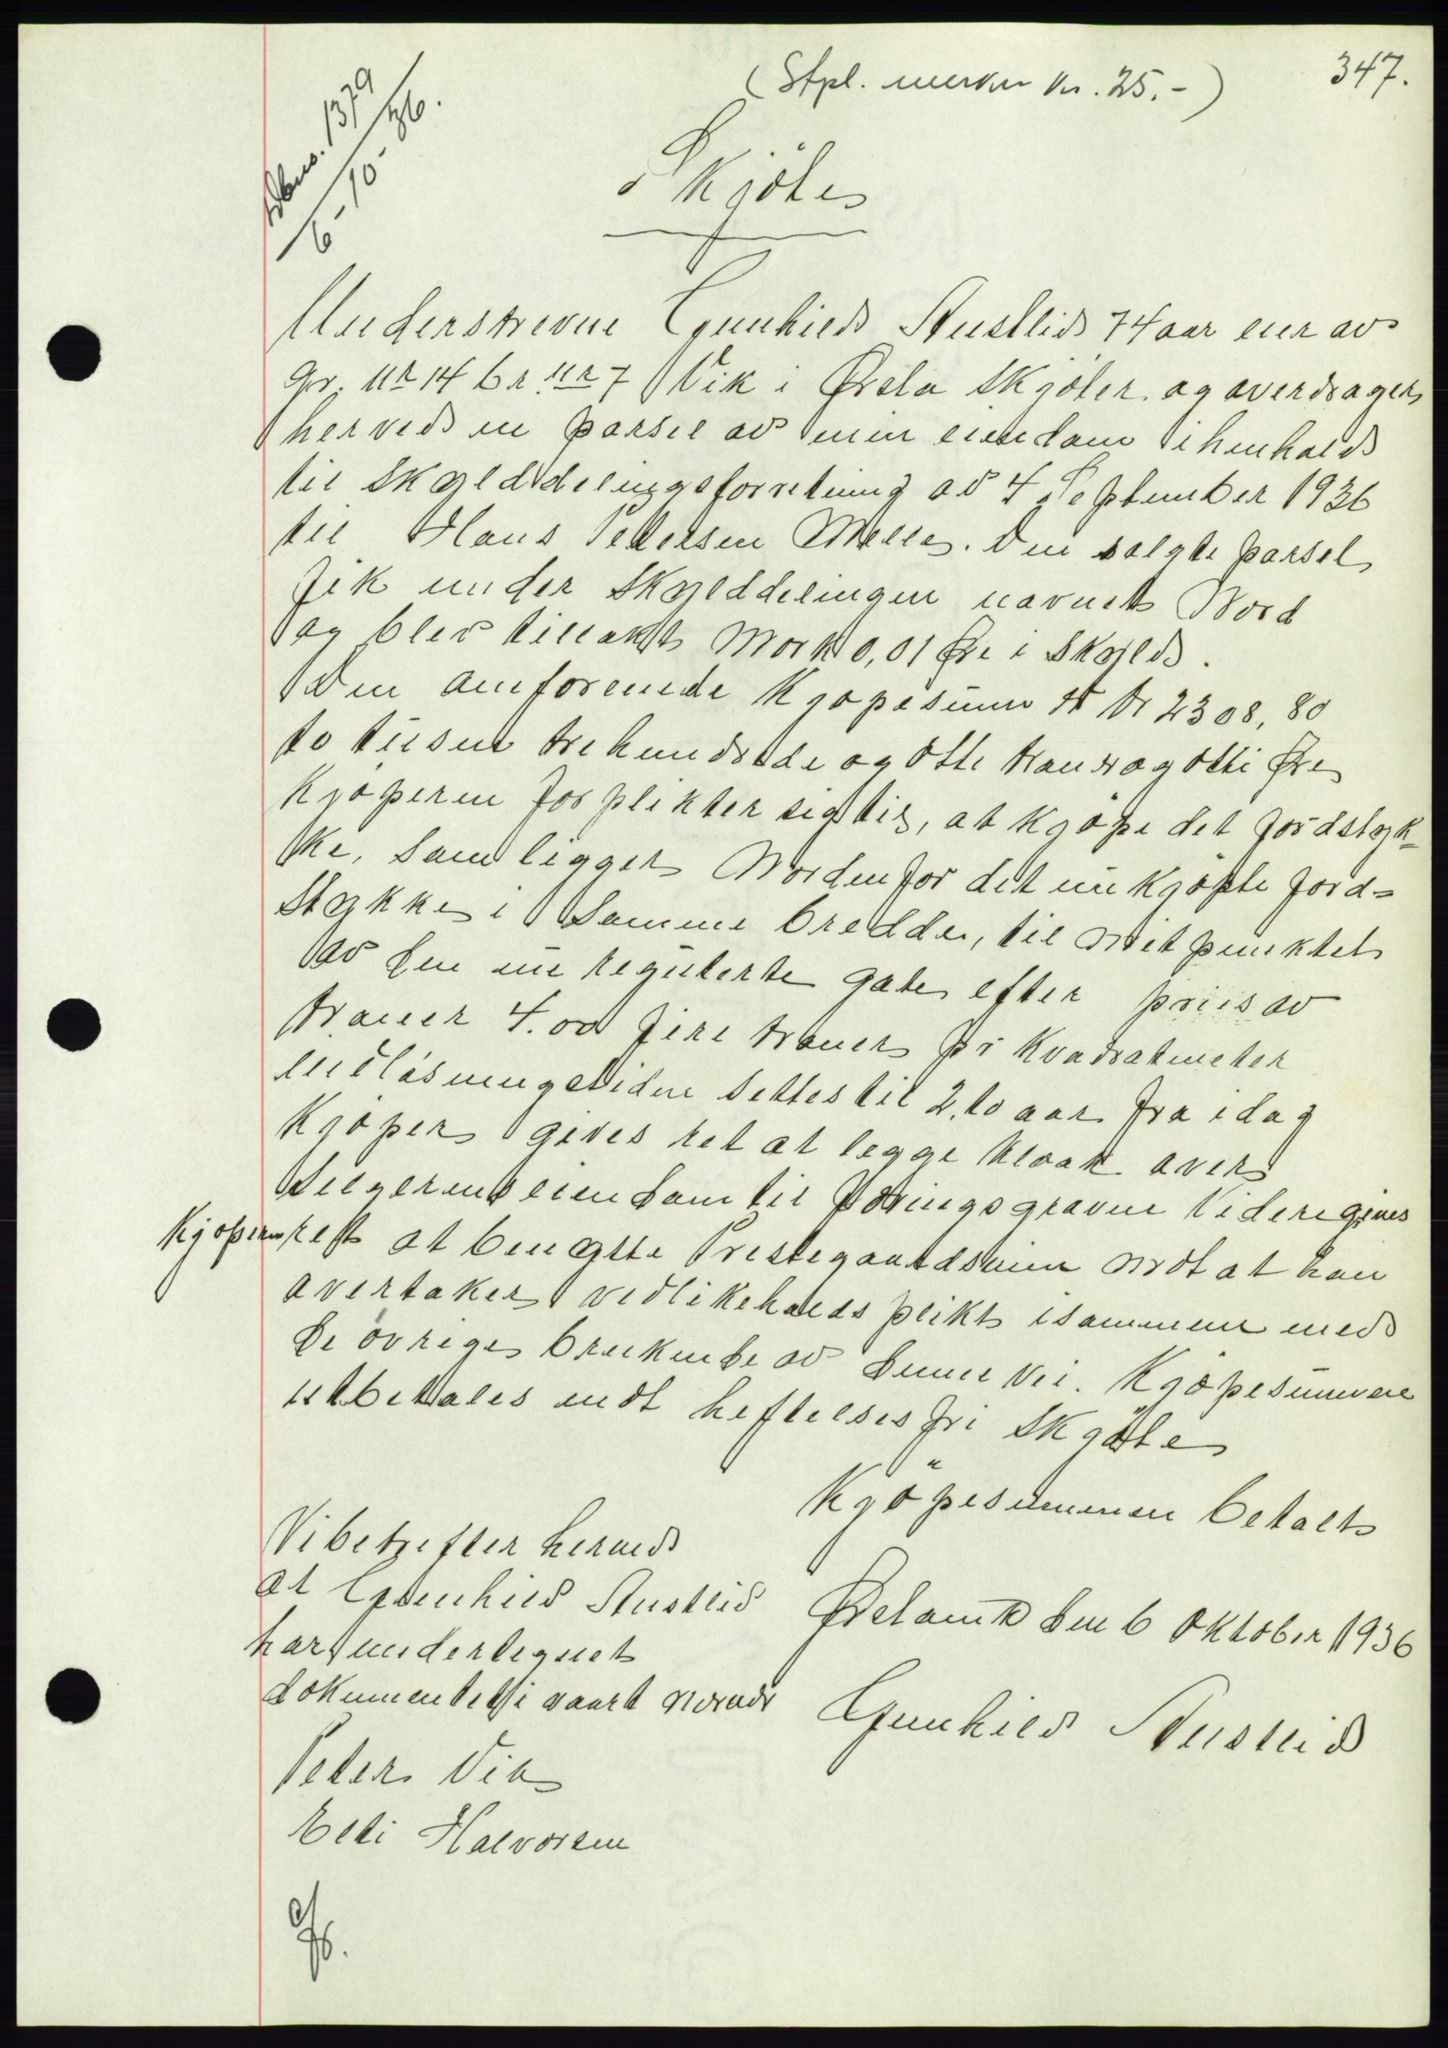 347.
(Stpl. merker kr. 25.-)
Dbno. 1379
6-10-36.
Skjöte
Underskrevne Gunhild Austlid 74 aar eier av
gr. nr 14 br. nr 7 Vik i Ørsta skjöter og overdrager
herved en parsel av min eiendom i henhold
til skylddelingsforretning av 4 September 1936
til Hans Petersen Melle. Den solgte parsel
fik under skylddelingen navnet Nord
og blev tillakt Mark 0,01 Øre i skyld.
Den omforenede Kjöpesum er kr 2308,80
to tusen trehundrede og otte kroner og otti Øre
Kjöperen forplikter sig til, at kjöpe det jordstyk-
ke, som ligger Nordenfor det nu kjöpte jord-
stykke i samme bredde, til midtpunktet
av den nu regulerte gate efter pris av
kroner 4.00 fire kroner pr kvadratmeter
indlösningstiden settes til 2. to aar fra idag
Kjöper gives ret at legge kloak over
selgerens eiendom til Föringsgraven Videre gives
Kjöperen ret at benytte Prestegaardsveien mot at han
overtaker vedlikeholdsplikt isammen med
de övrige brukende av denne vei. Kjöpesummen
utbetales mot heftelsesfri Skjöte
Kjöpesummen betalt
Vi betrefter herved
at Gunhild Austlid
har undertegnet
dokumentet i vaart nærvær
Peter Vik
Eldi Halvorsen
Ørstavik den 6 Oktober 1936
Gunhild Austlid